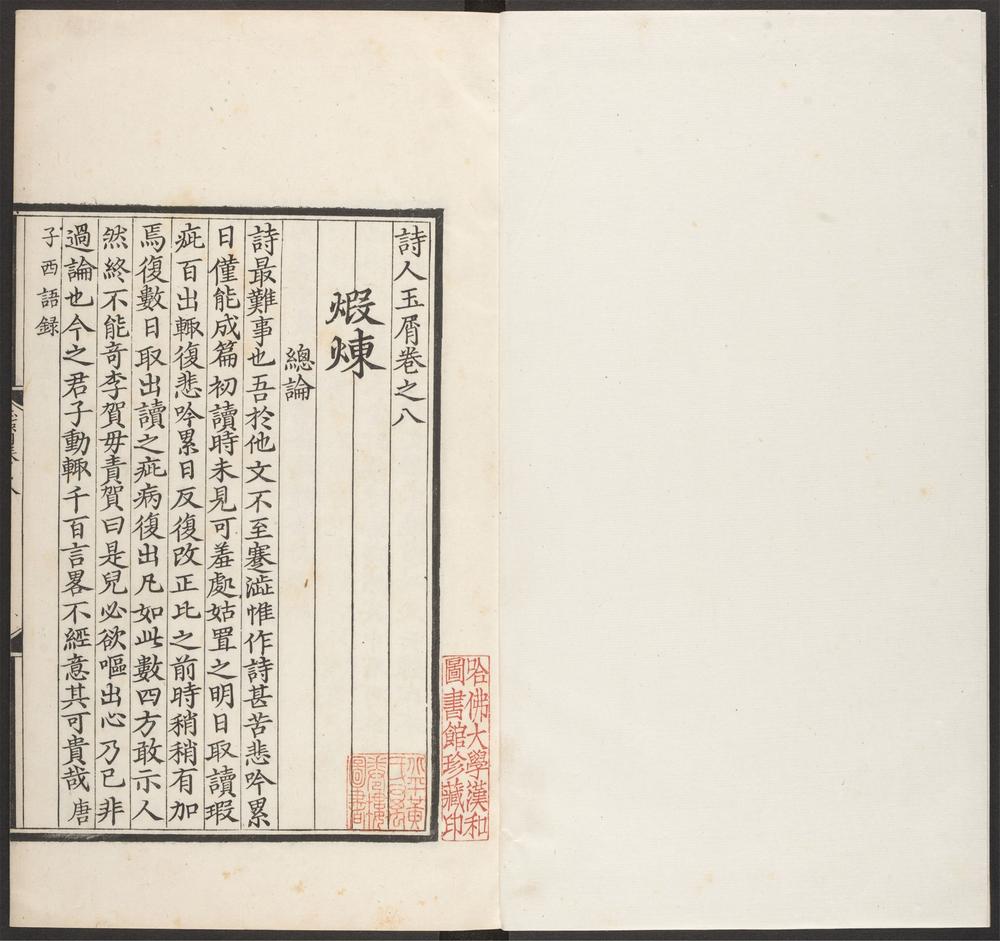 詩人玉屑卷之八
煆煉
總論
詩最難事也吾於他文不至蹇澁惟作詩甚苦悲吟累
日僅能成篇初讀時未見可羞處姑置之明日取讀瑕
疵百出輙復悲吟累日反復改正比之前時稍稍有加
焉復數日取出讀之疵病復出凡如此數四方敢示人
然終不能奇李賀毋責賀曰是兒必欲嘔出心乃已非
過論也今之君子動輙千百言畧不經意其可貴哉唐
子西語録
哈佛大學漢和
圖書館珍藏印